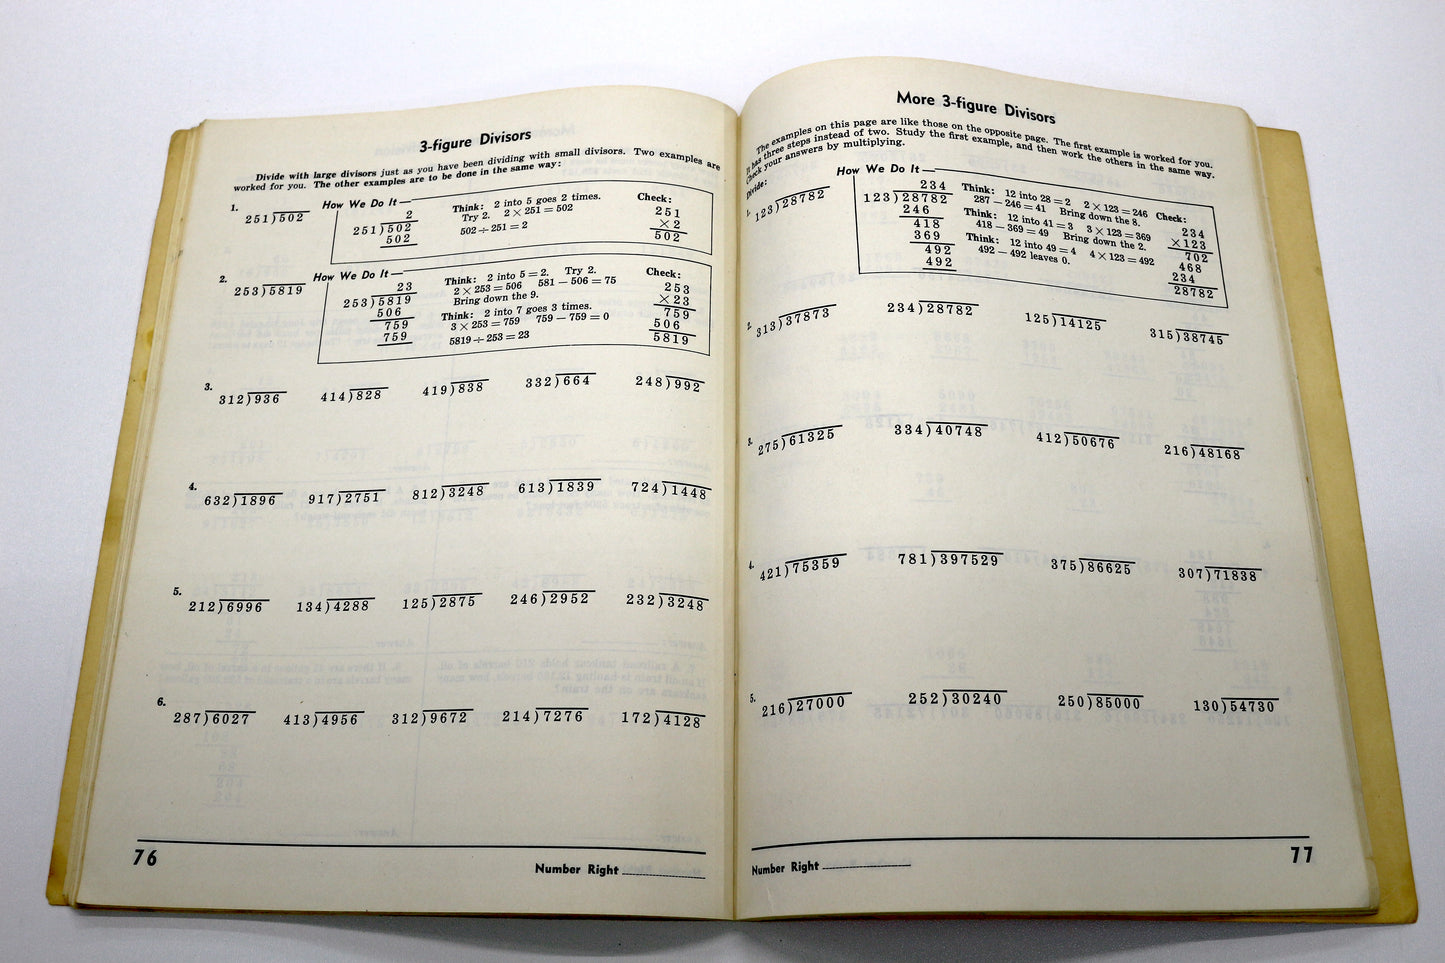 3-figure Divisors
Divide with large divisors just as you have been dividing with small divisors. Two examples are
worked for you. The other examples are to be done in the same way:
1. 251)502
How We Do It—
2
251)502
502
Think: 2 into 5 goes 2 times.
Try 2. 2 × 251 = 502
502 ÷ 251 = 2
Check:
251
×2
502
2. 253)5819
How We Do It—
23
253)5819
506
759
759
Think: 2 into 5 = 2. Try 2.
2 × 253 = 506 581 – 506 = 75
Bring down the 9.
Think: 2 into 7 goes 3 times.
3 × 253 = 759 759 – 759 = 0
5819 ÷ 253 = 23
Check:
253
×23
759
506
5819
3. 312)936 414)828 419)838 332)664 248)992
4. 632)1896 917)2751 812)3248 613)1839 724)1448
5. 212)6996 134)4288 125)2875 246)2952 232)3248
6. 287)6027 413)4956 312)9672 214)7276 172)4128
76
Number Right
More 3-figure Divisors
The examples on this page are like those on the opposite page. The first example is worked for you.
It has three steps instead of two. Study the first example, and then work the others in the same way.
Check your answers by multiplying.
Divide:
1. 123)28782
How We Do It—
234
123)28782
246
418
369
492
492
Think: 12 into 28 = 2 2 × 123 = 246
287 – 246 = 41 Bring down the 8.
Think: 12 into 41 = 3 3 × 123 = 369
418 – 369 = 49 Bring down the 2.
Think: 12 into 49 = 4 4 × 123 = 492
492 – 492 leaves 0.
Check:
234
×123
702
468
234
28782
2. 313)37873 234)28782 125)14125 315)38745
3. 275)61325 334)40748 412)50676 216)48168
4. 421)75359 781)397529 375)86625 307)71838
5. 216)27000 252)30240 250)85000 130)54730
Number Right
77